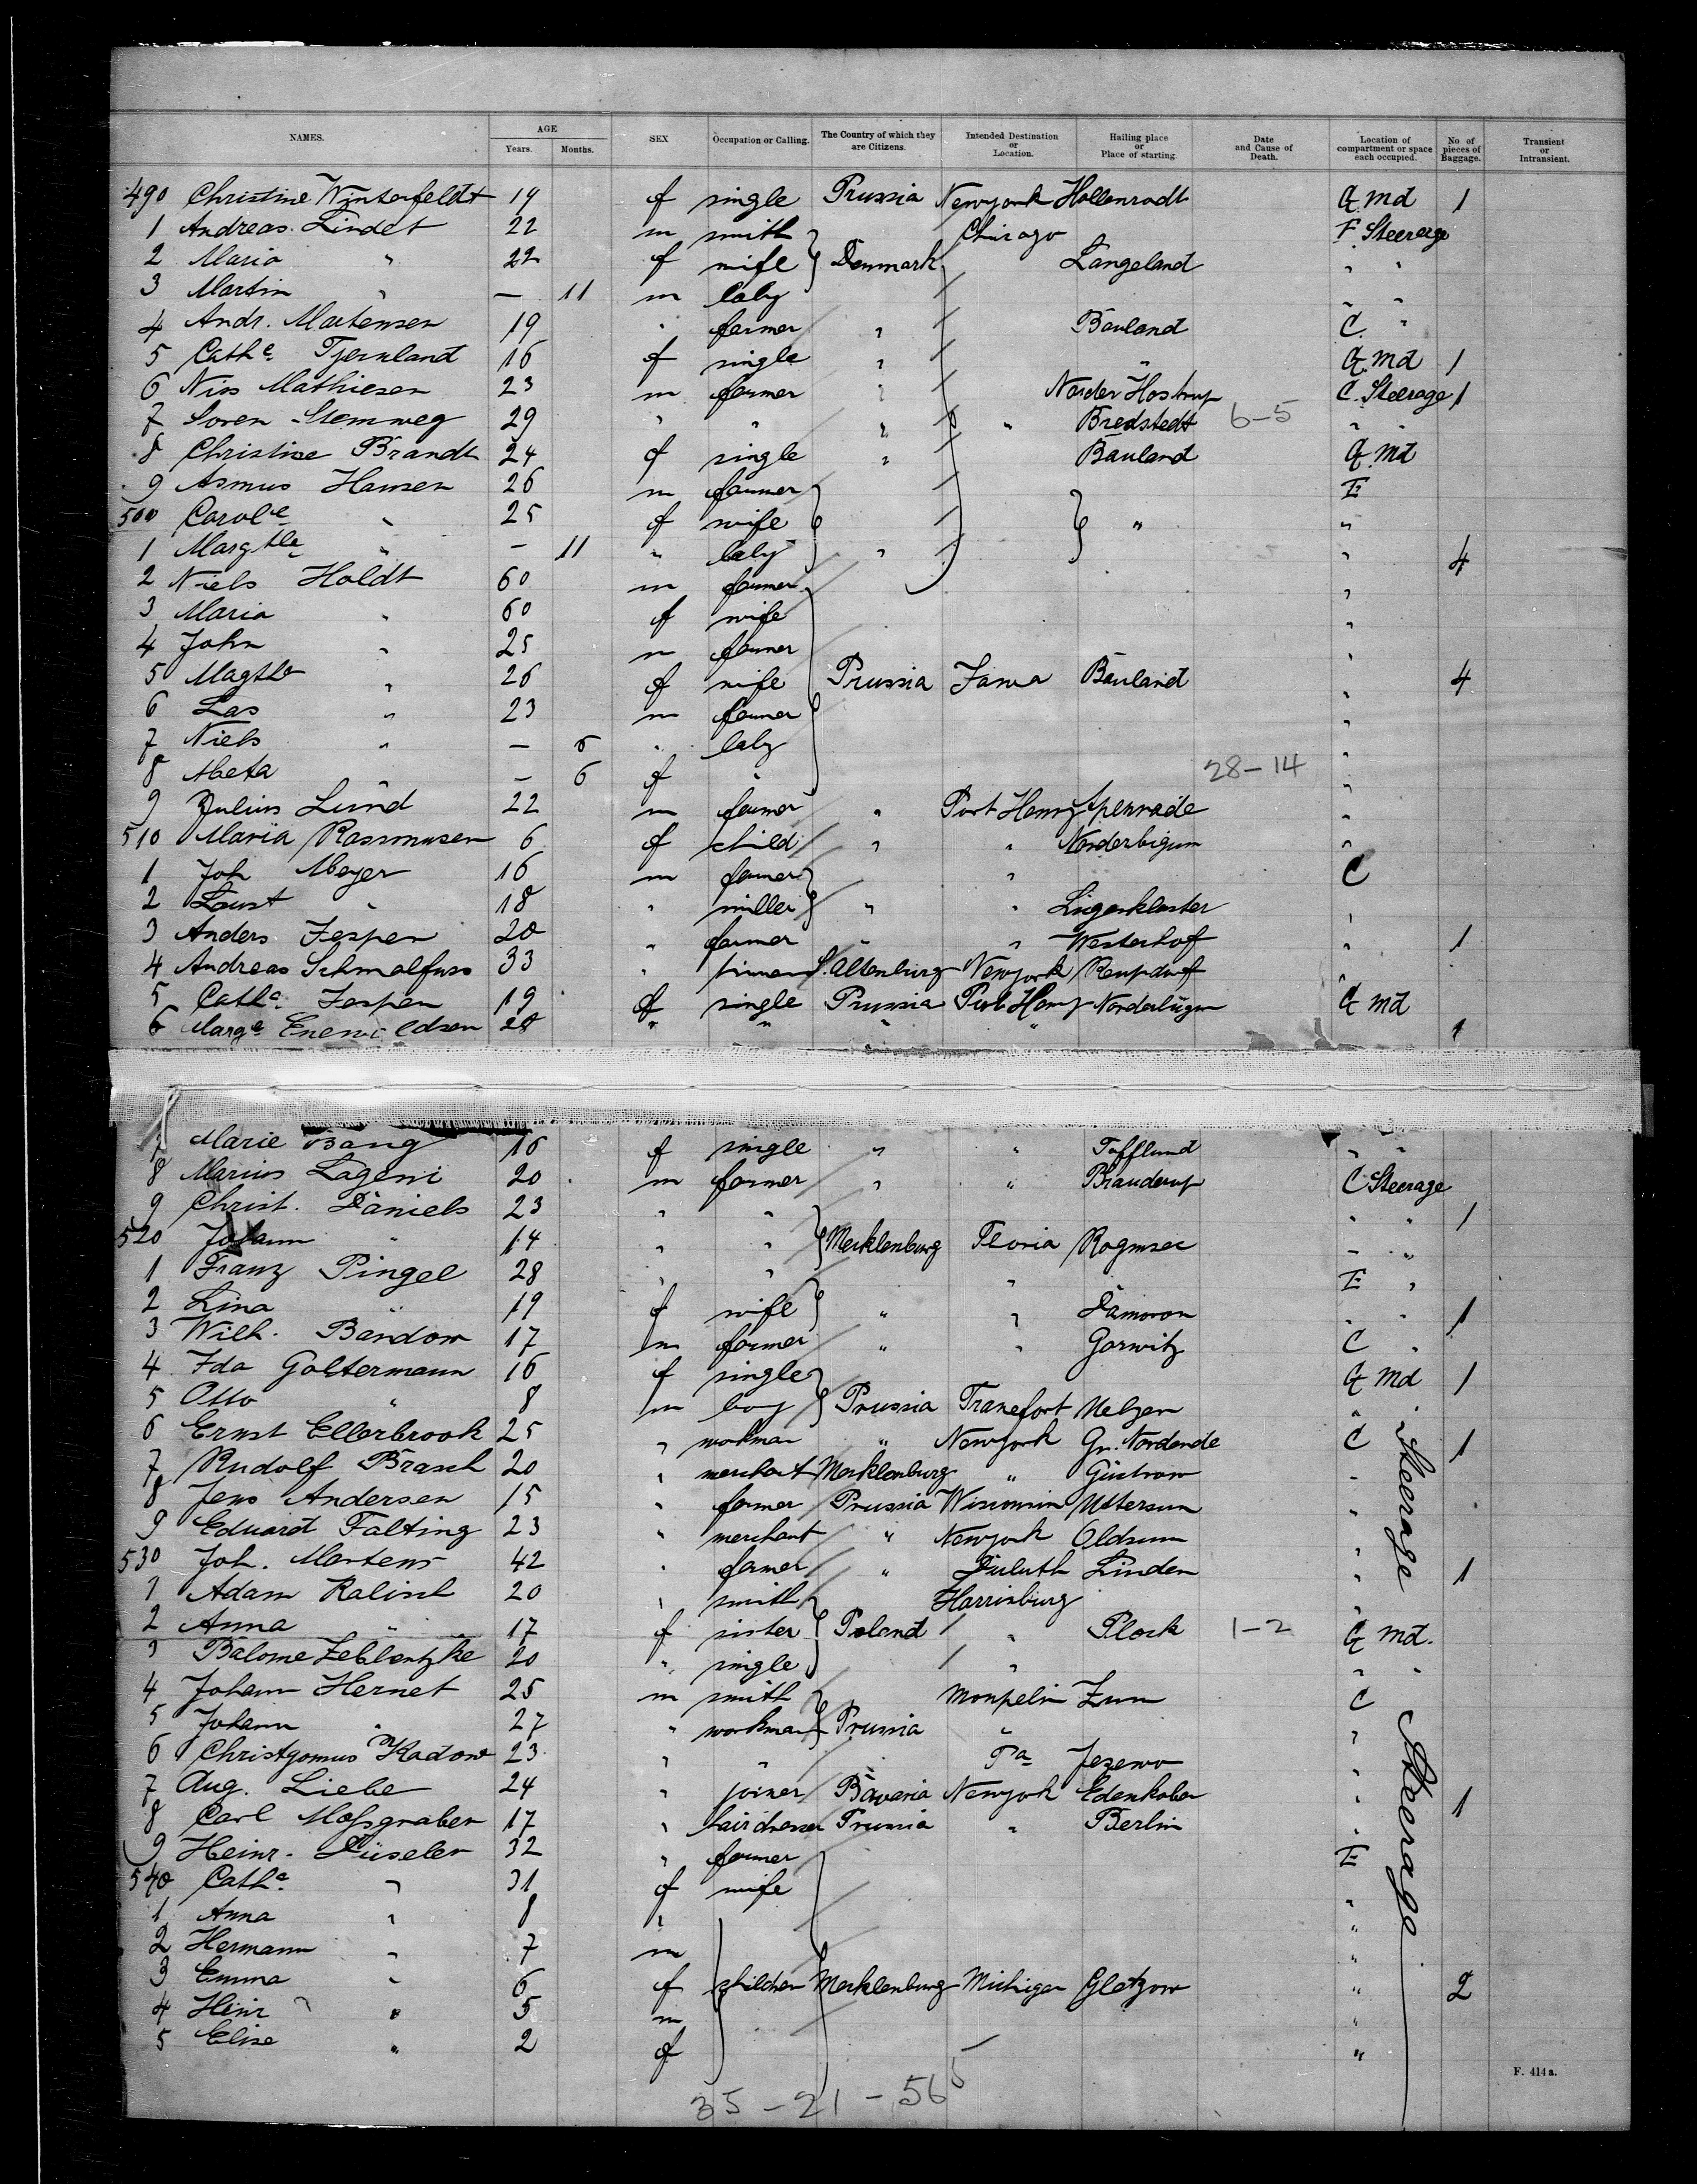 NAMES. AGE Years. Months. SEX Occupation or Calling. The Country of which they are Citizens. Intended Destination or Location. Hailing place or Place of starting. Date and Cause of Death. Location of compartment or space each occupied. No. of pieces of Baggage. Transient or Intransient.
490 Christine Winterfeldt 19 f single Prussia Newyork Hollenradt G. Md 1
1 Andreas Lindet 22 m smith Chicago F. Steerage
2 Maria " 22 f wife Denmark Langeland " "
3 Martin " — 11 m baby " "
4 Andr. Martensen 19 " farmer " Bauland C. "
5 Cathe Tjernland 16 f single " " G. Md 1
6 Niss Mathiesen 23 m farmer " Norder Hostrup C. Steerage 1
7 Soren Stemweg 29 " " " " Bredstedt 6-5 " "
8 Christine Brandt 24 f single " Bauland G. Md
9 Asmus Hansen 26 m farmer E
500 Carole " 25 f wife " "
1 Margthe " — 11 " baby " " 4
2 Niels Holdt 60 m farmer "
3 Maria " 60 f wife "
4 John " 25 m farmer "
5 Magthe " 26 f wife Prussia Jowa Bauland " 4
6 Las " 23 m farmer "
7 Niels " — 6 " baby "
8 Meta " — 6 f " 28-14 "
9 Julius Lund 22 m farmer " Port Henry Apenrade "
510 Maria Rasmussen 6 f child " " Norderbigum "
1 Joh Meyer 16 m farmer " C
2 Laust " 18 " miller " " Lügenkloster "
3 Anders Jespen 20 " farmer " " Westerhof " 1
4 Andreas Schmalfuss 33 " S. Altenburg Newyork "
5 Catha Jespen 19 f single Prussia Port Henry Norderlügum G Md
6 Marge Enewoldsen 28 " " " " 1
7 Marie Bang 16 f single " " Tofflund " "
8 Marius Lageni 20 m farmer " " Brauderup C Steerage
9 Christ. Daniels 23 " " " " 1
520 Johann " 14 " " Mecklenburg Peoria Rogmser " "
1 Franz Pingel 28 " " " E "
2 Lina " 19 f wife " " Damoron " " 1
3 Wilh. Bandow 17 m farmer " " Garwitz C "
4 Ida Goltermann 16 f single G Md 1
5 Otto " 8 m boy Prussia Francfort Uelzen "
6 Ernst Ellerbrook 25 " workman " Newyork Gr. Nordende C Steerage 1
7 Rudolf Brasch 20 " merchant Mecklenburg " Güstrow "
8 Jens Andersen 15 " farmer Prussia Wisconsin Uttersum "
9 Eduard Falting 23 " merchant " Newyork Oldsum "
530 Joh. Martens 42 " farmer " Duluth Linden " 1
1 Adam Kalisch 20 " smith Harrisburg "
2 Anna " 17 f sister Poland " Plock 1-2 G Md.
3 Balome Zeblentzke 20 " single " " "
4 Johann Hernet 25 m smith Monpelin Zum C
5 Johann " 27 " workman Prussia " "
6 Christgomus Kadow 23 " " " Pa Jezewo " Steerage
7 Aug. Liebe 24 " joiner Bavaria Newyork Edenkoben "
8 Carl Mossgraber 17 " hairdresser Prussia " Berlin " 1
9 Heinr. Düseler 32 " farmer E
540 Catha " 31 f wife "
1 Anna " 8 " "
2 Hermann " 7 m "
3 Emma " 6 f children Mecklenburg Michigan Gletzow " 2
4 Heinr " 5 m "
5 Elise " 2 f "
35-21-56
F. 414 a.